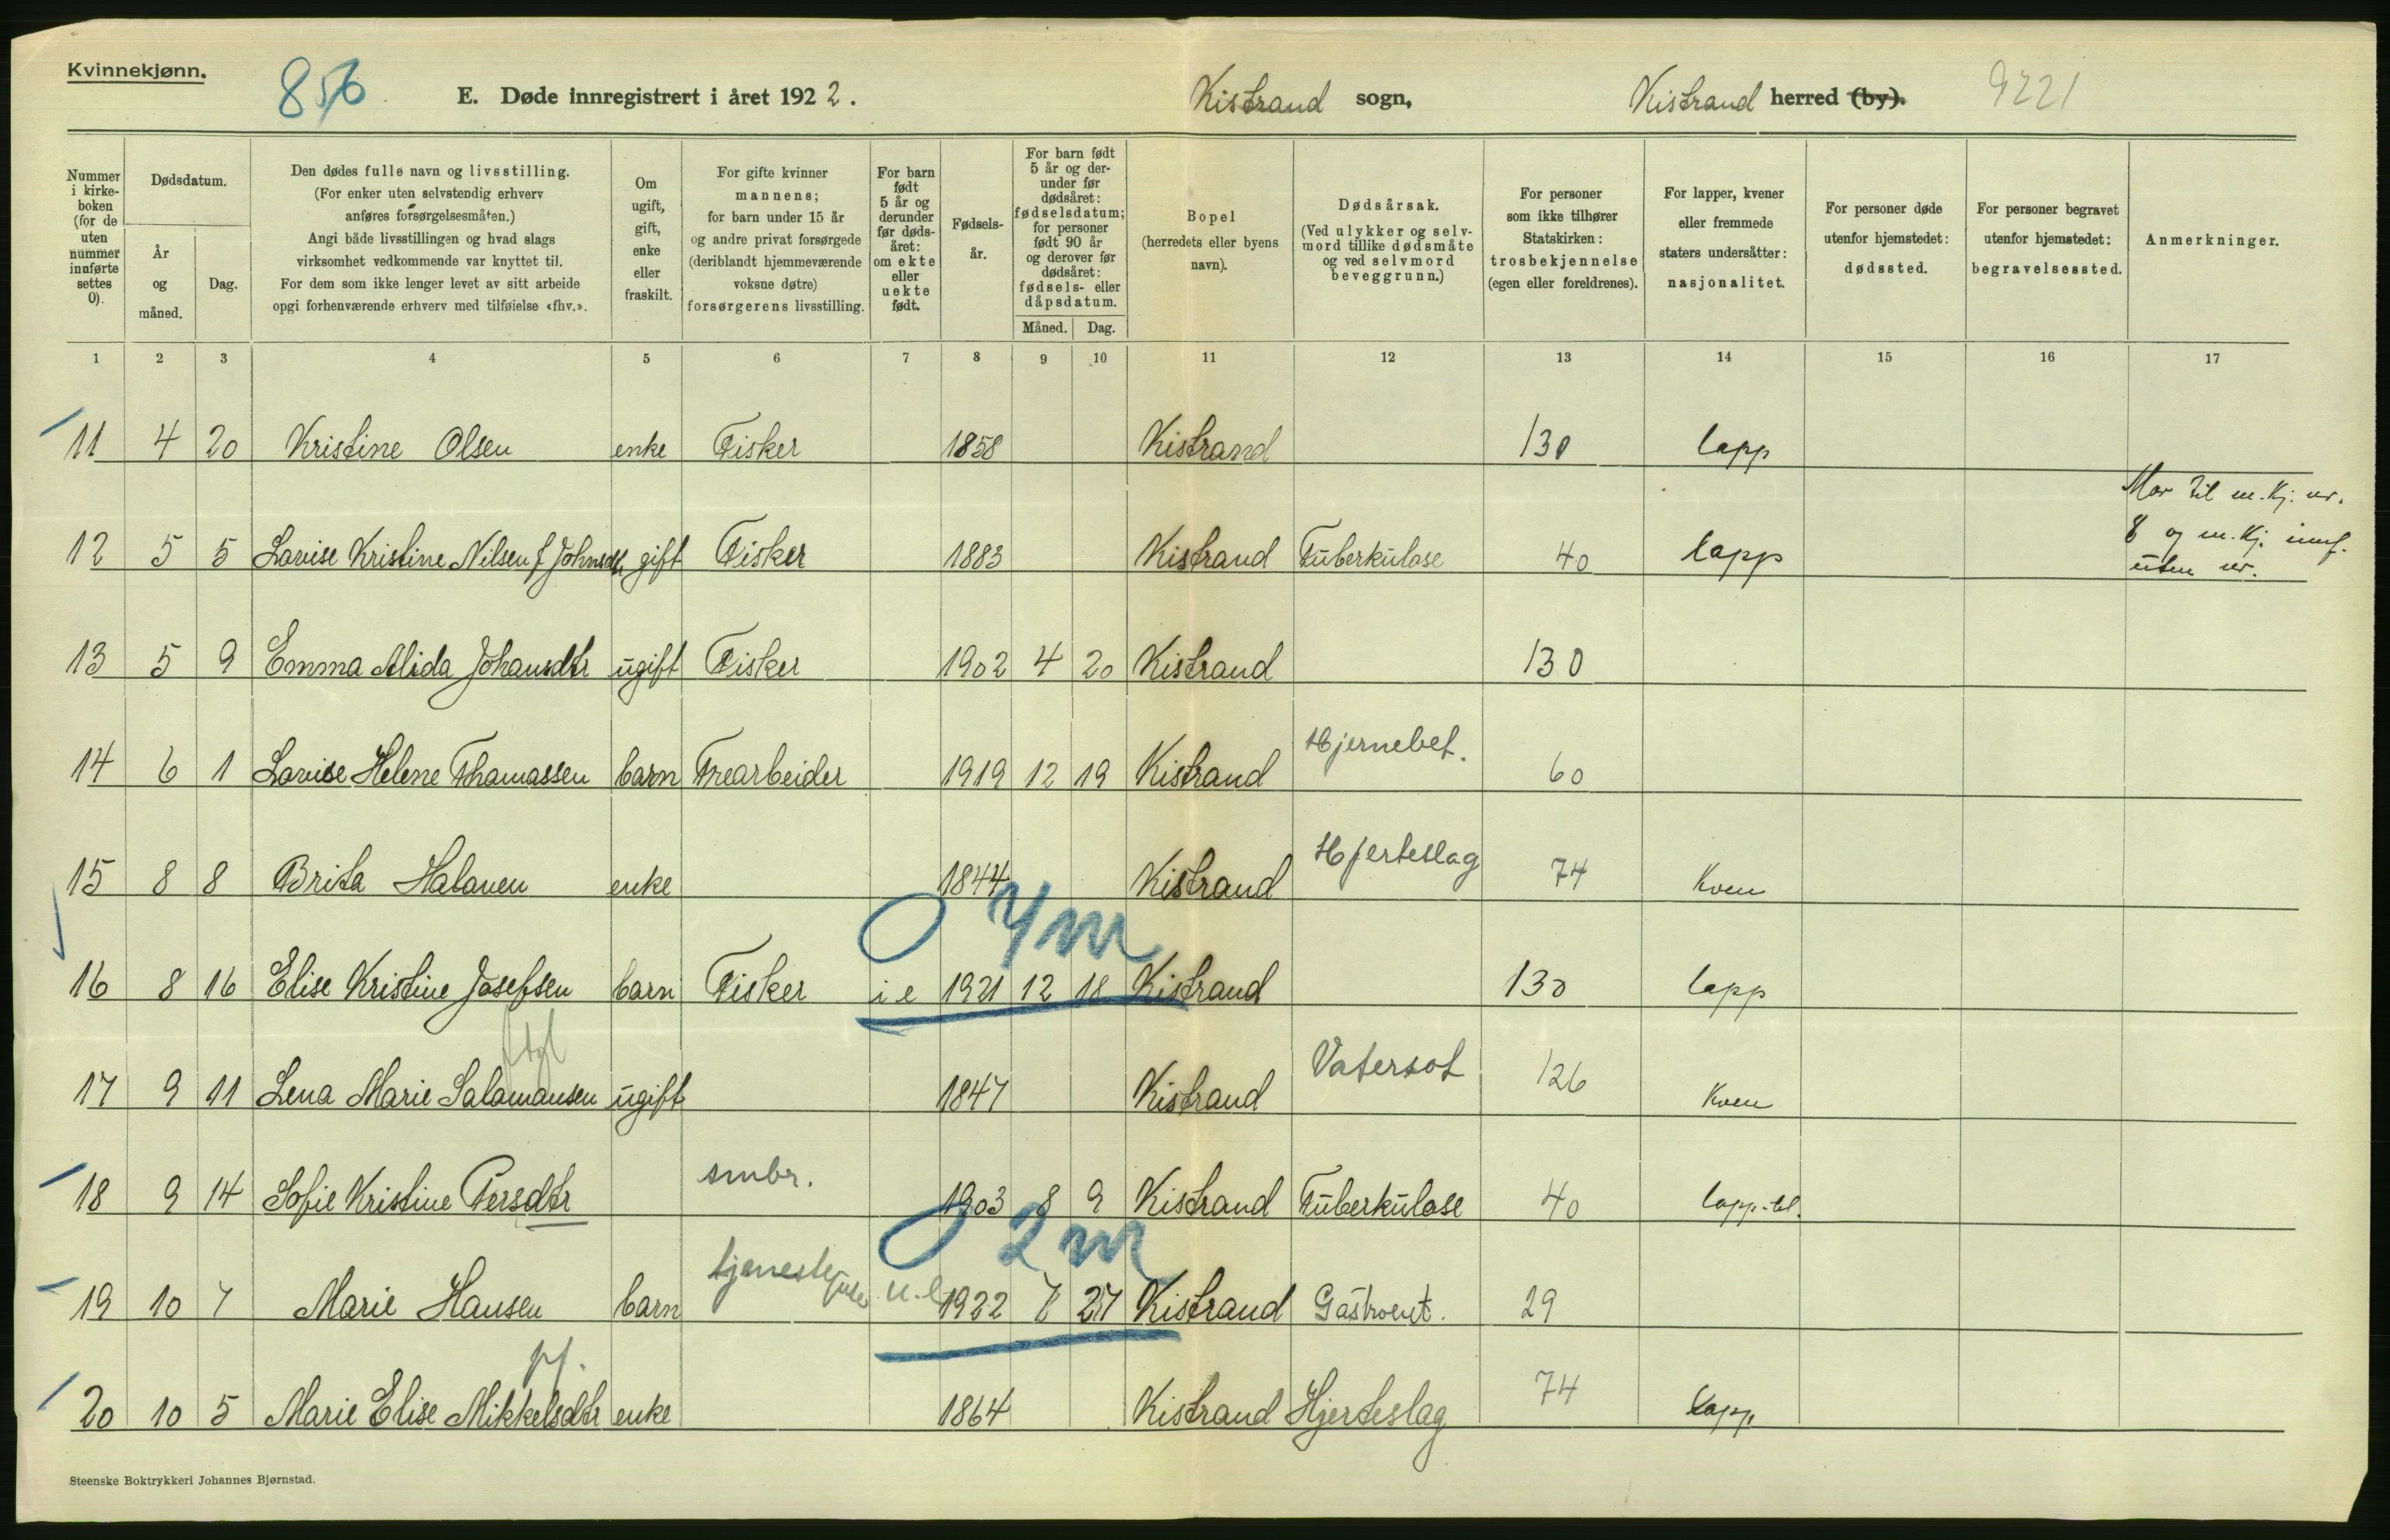 Kvinnekjønn.
856
E. Døde innregistrert i året 1922.
Kistrand sogn,
Kistrand herred (by).
9221
Nummer i kirke-boken (for de uten nummer innførte settes 0).
Dødsdatum.
År og måned.
Dag.
Den dødes fulle navn og livsstilling.
(For enker uten selvstendig erhverv
anføres forsørgelsesmåten.)
Angi både livsstillingen og hvad slags
virksomhet vedkommende var knyttet til.
For dem som ikke lenger levet av sitt arbeide
opgi forhenværende erhverv med tilføielse «fhv.».
Om ugift, gift, enke eller fraskilt.
For gifte kvinner
mannens;
for barn under 15 år
og andre privat forsørgede
(deriblandt hjemmeværende
voksne døtre)
forsørgerens livsstilling.
For barn født 5 år og derunder før døds-året: om ekte eller uekte født.
Fødsels-år.
For barn født 5 år og der-under før dødsåret: fødselsdatum; for personer født 90 år og derover før dødsåret: fødsels- eller dåpsdatum.
Måned. Dag.
Bopel
(herredets eller byens
navn).
Dødsårsak.
(Ved ulykker og selv-
mord tillike dødsmåte
og ved selvmord
beveggrunn.)
For personer
som ikke tilhører
Statskirken:
trosbekjennelse
(egen eller foreldrenes).
For lapper, kvener
eller fremmede
staters undersåtter:
nasjonalitet.
For personer døde
utenfor hjemstedet:
dødssted.
For personer begravet
utenfor hjemstedet:
begravelsessted.
Anmerkninger.
1 2 3 4 5 6 7 8 9 10 11 12 13 14 15 16 17
11 4 20 Kristine Olsen enke Fisker 1858 Kistrand 130 lapp
Mor til m. kj. nr.
8 og m. kj. innf.
uten nr.
12 5 5 Lovise Kristine Nilsen f Johnsdtr gift Fisker 1883 Kistrand Tuberkulose 40 lapp
13 5 9 Emma Alida Johansdtr ugift Fisker 1902 4 20 Kistrand 130
14 6 1 Lovise Helene Thomassen barn Trearbeider 1919 12 19 Kistrand Hjernebet. 60
15 8 8 Brita Halonen enke 1844 Kistrand Hjerteslag 74 Kven
0 7 m
16 8 16 Elise Kristine Josefsen barn Fisker i e 1921 12 18 Kistrand 130 lapp
17 9 11 Lena Marie Salamonsen ugift 1847 Kistrand Vatersot 126 Kven
18 9 14 Sofie Kristine Persdtr smbr. 1903 8 9 Kistrand Tuberkulose 40
0 2 m
19 10 7 Marie Hansen barn tjenestepike u.e 1922 7 27 Kistrand Gastroent. 29
20 10 5 Marie Elise Mikkelsdtr enke 1864 Kistrand Hjerteslag 74 lapp.
Steenske Boktrykkeri Johannes Bjørnstad.